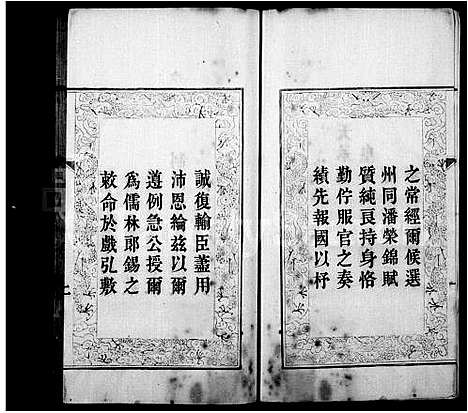 之常經爾候選
州同潘榮錦賦
質純良持身恪
勤佇服官之奏
績先報國以抒
誠復輸臣藎用
沛恩綸茲以爾
遵例急公授爾
為儒林郎錫之
敕命於戲弘敷